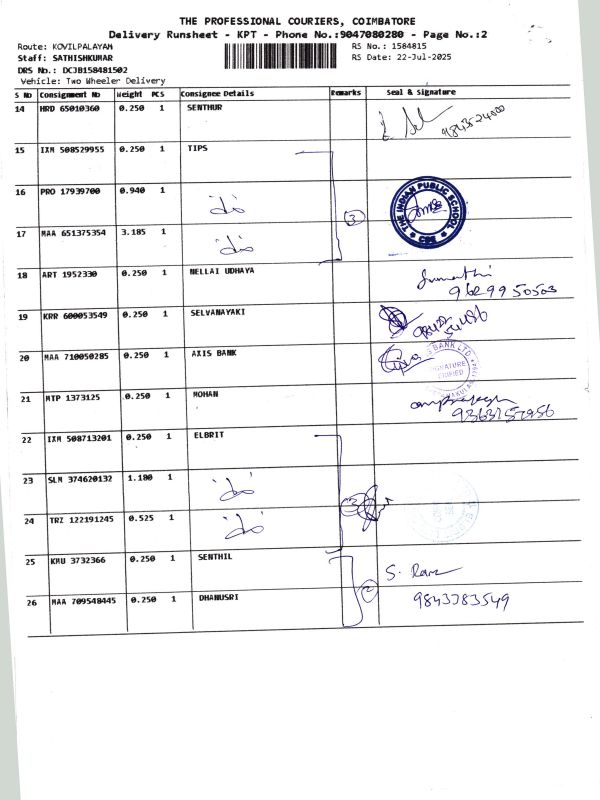 THE PROFESSIONAL COURIERS, COIMBATORE
Delivery Runsheet - KPT - Phone No.:9047080280 - Page No.:2
Route: KOVILPALAYAM RS No.: 1584815
Staff: SATHISHKUMAR RS Date: 22-Jul-2025
DRS No.: DCJB158481502
Vehicle: Two Wheeler Delivery
S NO Consignment No Weight PCS Consignee Details Remarks Seal & Signature
14 HRD 65010360 0.250 1 SENTHUR
15 IXM 508529955 0.250 1 TIPS
16 PRO 17939700 0.940 1 3 THE INDIAN PUBLIC SCHOOL
17 MAA 651375354 3.185 1 CBE
18 ART 1952330 0.250 1 NELLAI UDHAYA Sumathi
9629950503
19 KRR 600053549 0.250 1 SELVANAYAKI
20 MAA 710050285 0.250 1 AXIS BANK BANK LTD
SIGNATURE
VERIFIED
21 MTP 1373125 0.250 1 MOHAN
22 IXM 508713201 0.250 1 ELBRIT
23 SLM 374620132 1.180 1
24 TRZ 122191245 0.525 1
25 KMU 3732366 0.250 1 SENTHIL 2
26 MAA 709548445 0.250 1 DHANUSRI 9843383549